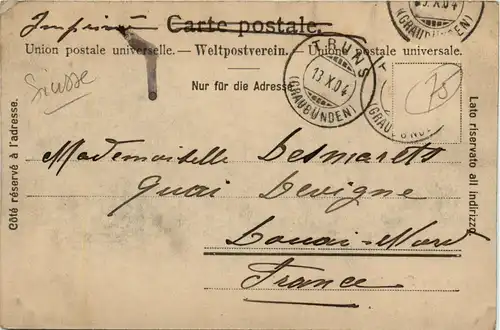 Imprimé Carte postale.
Union postale universelle. — Weltpostverein. — Unione postale universale.
Nur für die Adresse
TRUNS
13.X.04
(GRAUBÜNDEN)
13.X.04
(GRAUBÜNDEN)
75
Suisse
Côté réservé à l'adresse.
Lato riservato all indirizzo.
Mademoiselle Desmarets
Quai Devigne
Douai-Nord
France